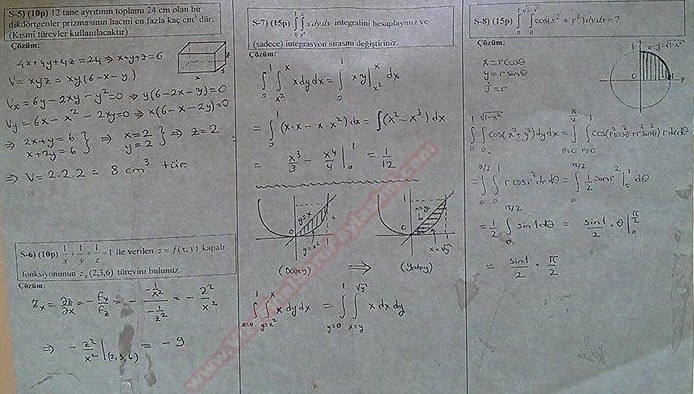 S-5) (10p) 12 tane ayrıtının toplamı 24 cm olan bir
dikdörtgenler prizmasının hacmi en fazla kaç cm³ dür.
(Kısmi türevler kullanılacaktır)
Çözüm:
4x+4y+4z=24 ⇒ x+y+z=6
V=xyz = xy(6-x-y)
Vx = 6y-2xy-y²=0 ⇒ y(6-2x-y)=0
Vy = 6x-x²-2xy=0 ⇒ x(6-x-2y)=0
⇒ 2x+y=6
x+2y=6 } ⇒ x=2
y=2 } ⇒ z=2
⇒ V=2.2.2 = 8 cm³ tür.
S-6) (10p) 1/x + 1/y + 1/z = 1 ile verilen z=f(x,y) kapalı
fonksiyonunun zx(2,3,6) türevini bulunuz.
Çözüm:
Zx = ∂z/∂x = -Fx/Fz = - (-1/x²)/(-1/z²) = -z²/x²
⇒ -z²/x² |(2,3,6) = -9
S-7) (15p) ∫₀¹∫ₓ²ˣ x dy dx integralini hesaplayınız ve
(sadece) integrasyon sırasını değiştiriniz.
Çözüm:
∫₀¹∫ₓ²ˣ x dy dx = ∫₀¹ xy|ₓ²ˣ dx
= ∫₀¹ (x.x-x.x²) dx = ∫(x²-x³) dx
= x³/3 - x⁴/4 |₀¹ = 1/12
1 y=x y=x² 0 1
1 x=y x=√y 0
(Düşey) ⇒ (Yatay)
∫x=0¹ ∫y=x²ˣ x dy dx = ∫y=0¹ ∫x=y^√y x dx dy
S-8) (15p) ∫₀¹∫₀^√(1-x²) cos(x²+y²) dy dx = ?
Çözüm:
x=rcosθ
y=rsinθ
J=r
y=√1-x²
0 1
∫₀¹∫₀^√(1-x²) cos(x²+y²) dy dx = ∫θ=0^π/2 ∫r=0¹ cos(r²cos²θ+r²sin²θ) r dr dθ
= ∫₀^π/2 ∫₀¹ r cos r² dr dθ = ∫₀^π/2 1/2 sin r² |₀¹ dθ
= 1/2 ∫₀^π/2 sin1 dθ = sin1/2 . θ |₀^π/2
= sin1/2 . π/2